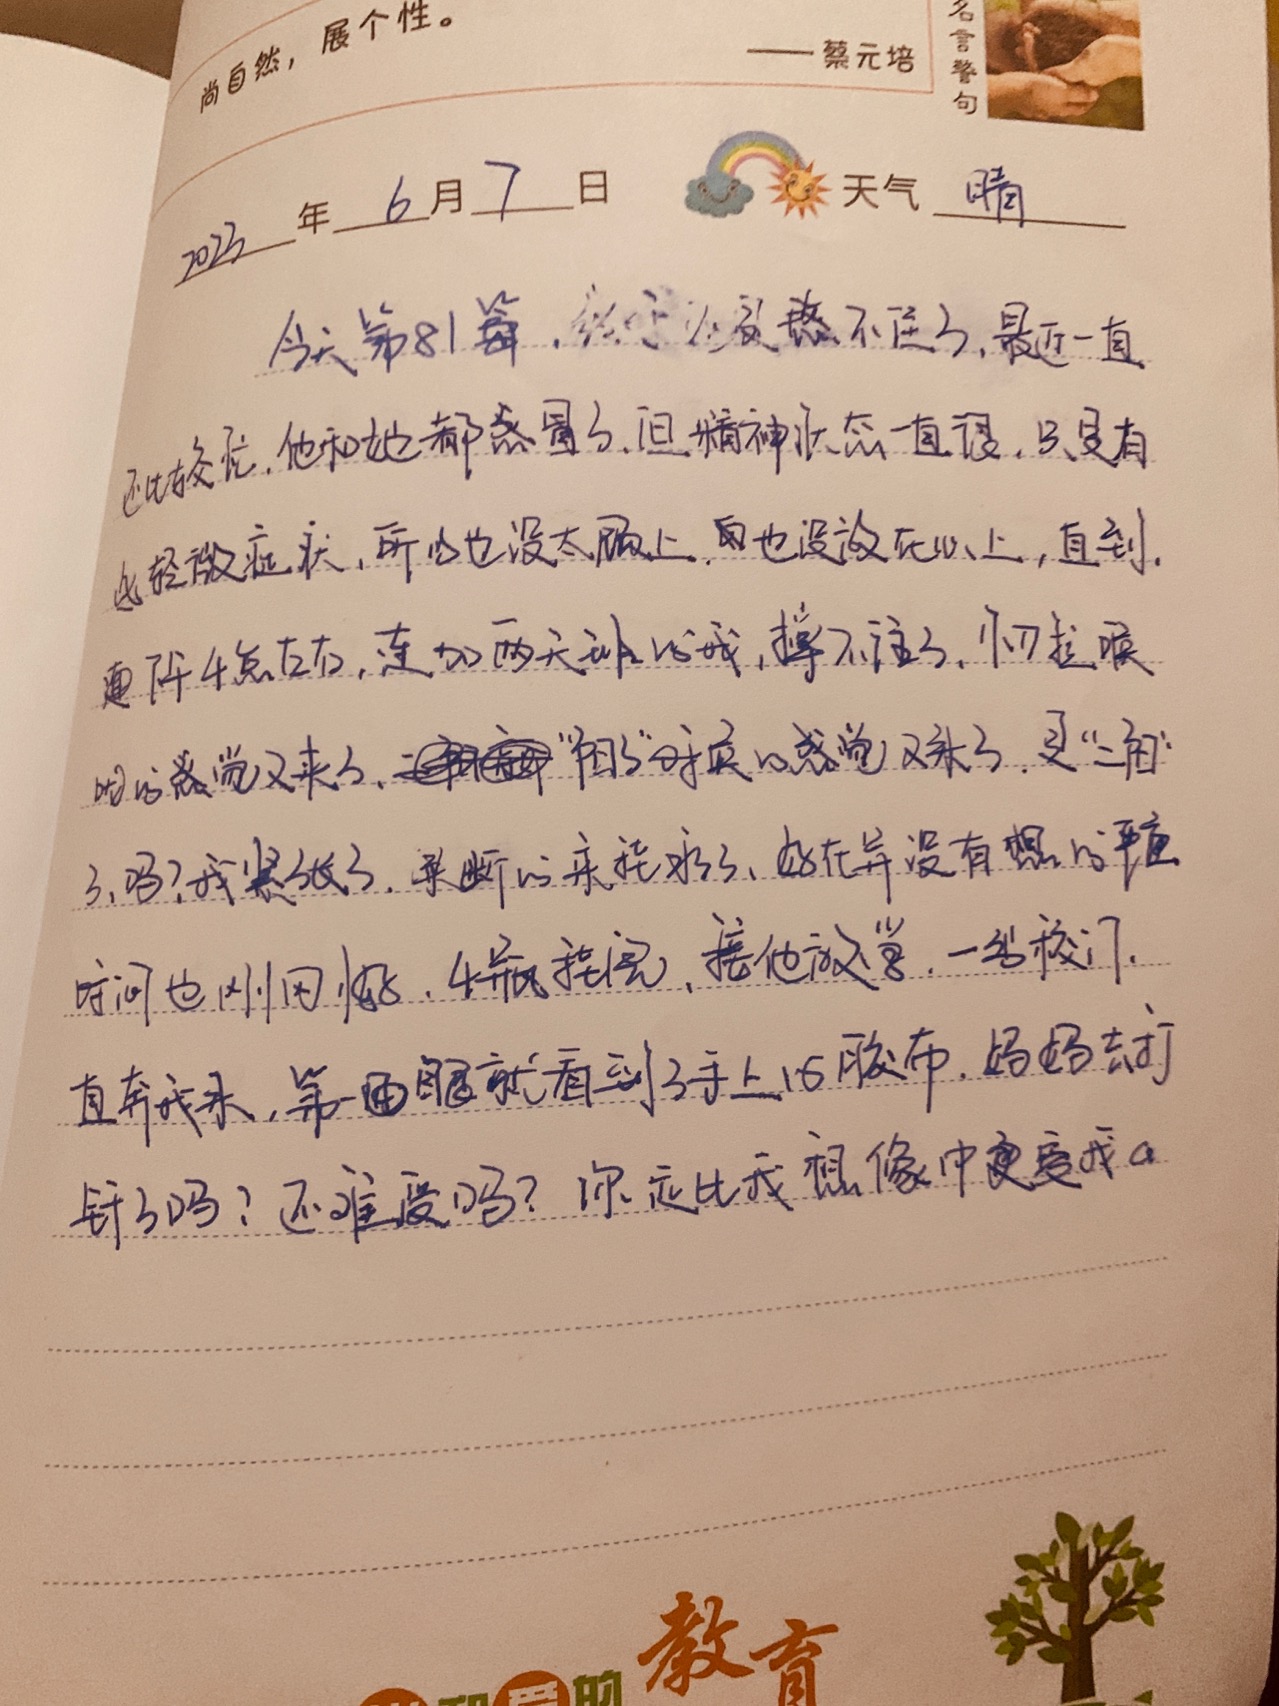 尚自然，展个性。
——蔡元培
名言警句
2023年6月7日 天气 晴
今天第81篇，终于还是熬不住了，最近一直
还比较忙，他和她也都感冒了，但精神状态一直很，只是有
些轻微症状，所以也没太顾上，自也没放在心上，直到，
直阵4点左右，连加两天班的我，撑不住了，刀拉喉
咙的感觉又来了，"阳了"时疾的感觉又来了，是"二阳"
了，吗？我紧张了，果断的来挂水了，好在并没有想的严重
时间也刚刚好，4瓶挂完，接他放学，一出校门，
直奔我来，第一眼就看到了手上的胶布，妈妈去打
针了吗？还难受吗？你远比我想像中更爱我。
和爱的教育